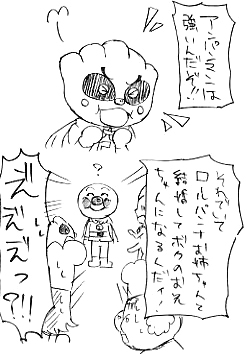 アンパンマンは
強いんだぞ!!
?
それでいて
ロールパンナお姉ちゃんと
結婚してボクのお兄
ちゃんになるんだイ!
ええええっ?!!